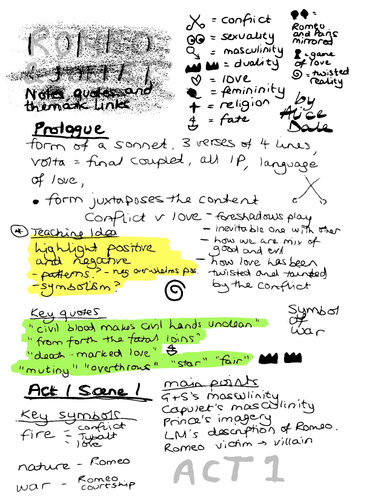 ROMEO
& JULIET
Notes, quotes and
thematic links
= conflict
= sexuality
= masculinity
= duality
= love
= femininity
= religion
= fate
= Romeo
and Paris
mirrored
= game
of love
= twisted
reality
by
Alice
Dale
Prologue
form of a sonnet. 3 verses of 4 lines,
volta = final coupled, all IP, language
of love,
• form juxtaposes the content
Conflict v love - foreshadows play
- inevitable one with other
- how we are mix of
good and evil
- how love has been
twisted and tainted
by the conflict
Teaching Idea
highlight positive
and negative
- patterns? - neg overwhelms pos.
- symbolism?
Symbol
of
war
Key quotes
"civil blood makes civil hands unclean"
"from forth the fatal loins"
"death-marked love"
"mutiny" "overthrows" "star" "fair"
Act 1 Scene 1
Key symbols
fire = conflict
Tybalt
love
nature - Romeo
war - Romeo
courtship
main points
G+S's masculinity
Capulet's masculinity
Prince's imagery
LM's description of Romeo.
Romeo victim → villain
ACT 1